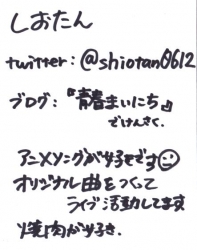 しおたん
twitter:@shiotan0612
ブログ:『青春まいにち』
でけんさく。
アニメソングが好きです☺
オリジナル曲をつくって
ライブ活動してます
焼肉が好き。